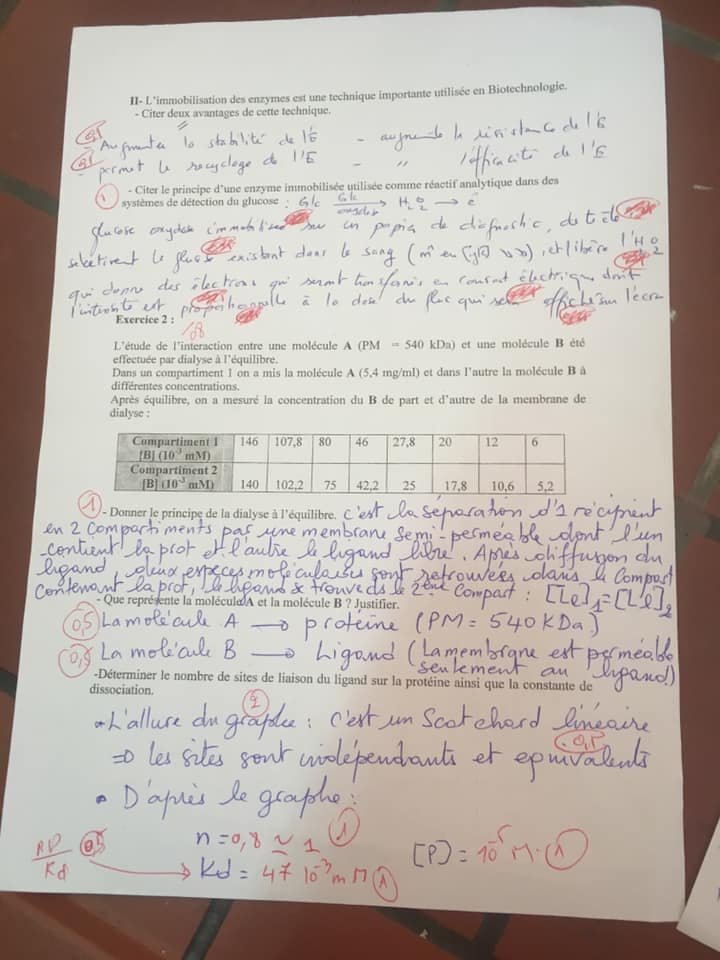 II- L'immobilisation des enzymes est une technique importante utilisée en Biotechnologie.
- Citer deux avantages de cette technique.
- Augmenter la stabilité de l'E - augmente la résistance de l'E
- permet le recyclage de l'E - " l'efficacité de l'E
1 - Citer le principe d'une enzyme immobilisée utilisée comme réactif analytique dans des
systèmes de détection du glucose : Glc Glc oxydase → H2O2 → é
glucose oxydase immobilisée sur un papier de diagnostic, détecte
selectivent le glucose existant dans le sang (m en [glc] ↘↘), et libère l'H2O2
qui donne des électrons qui seront transformés en courant électrique dont
l'intensité est proportionnelle à la dose du qui sera affiché sur l'écran
Exercice 2 :
18
L'étude de l'interaction entre une molécule A (PM = 540 kDa) et une molécule B été
effectuée par dialyse à l'équilibre.
Dans un compartiment 1 on a mis la molécule A (5,4 mg/ml) et dans l'autre la molécule B à
différentes concentrations.
Après équilibre, on a mesuré la concentration du B de part et d'autre de la membrane de
dialyse :
Compartiment 1 146 107,8 80 46 27,8 20 12 6
[B] (10⁻³ mM)
Compartiment 2
[B] (10⁻³ mM) 140 102,2 75 42,2 25 17,8 10,6 5,2
1 - Donner le principe de la dialyse à l'équilibre. C'est la séparation d'1 récipient
en 2 compartiments par une membrane semi-perméable dont l'un
contient la prot et l'autre le ligand libre. Après diffusion du
ligand, deux espèces moléculaires sont retrouvées dans le compart
contenant la prot, le ligand se trouve ds le 2ème compart : [Le]1=[Le]2
- Que représente la molécule A et la molécule B ? Justifier.
0,5 La molécule A → protéine (PM = 540 KDa)
0,5 La molécule B → Ligand (La membrane est perméable
seulement au ligand)
-Déterminer le nombre de sites de liaison du ligand sur la protéine ainsi que la constante de
dissociation.
2
* L'allure du graphe : C'est un Scatchard linéaire
0,5
⇒ les sites sont indépendants et equivalents
• D'après le graphe :
n = 0,8 ≃ 1 1
0,5 → Kd = 47 10⁻³ m M 1
[P] = 10⁻⁵ M. 1